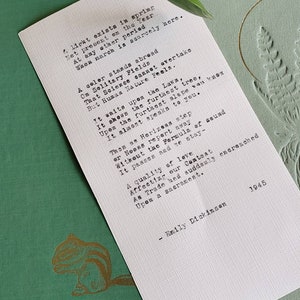 A Light exists in Spring
Not present on the Year
At any other Period
When March is scarcely here.
A Color stands abroad
On Solitary Fields
That Science cannot overtake
But Human Nature Feels.
It waits upon the Lawn,
It shows the furthest Tree
Upon the furthest slope you know
It almost speaks to you.
Then as Horizons step
Or Noons report away
Without the Formula of sound
It passes and we stay—
A quality of loss
Affecting our Content
As Trade had suddenly encroached
Upon a Sacrament.
1945
- Emily Dickinson